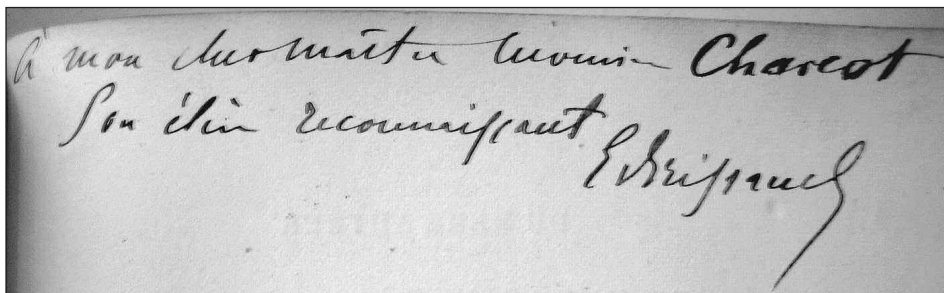 à mon cher maître Monsieur Charcot
Son élève reconnaissant
E Brissaud